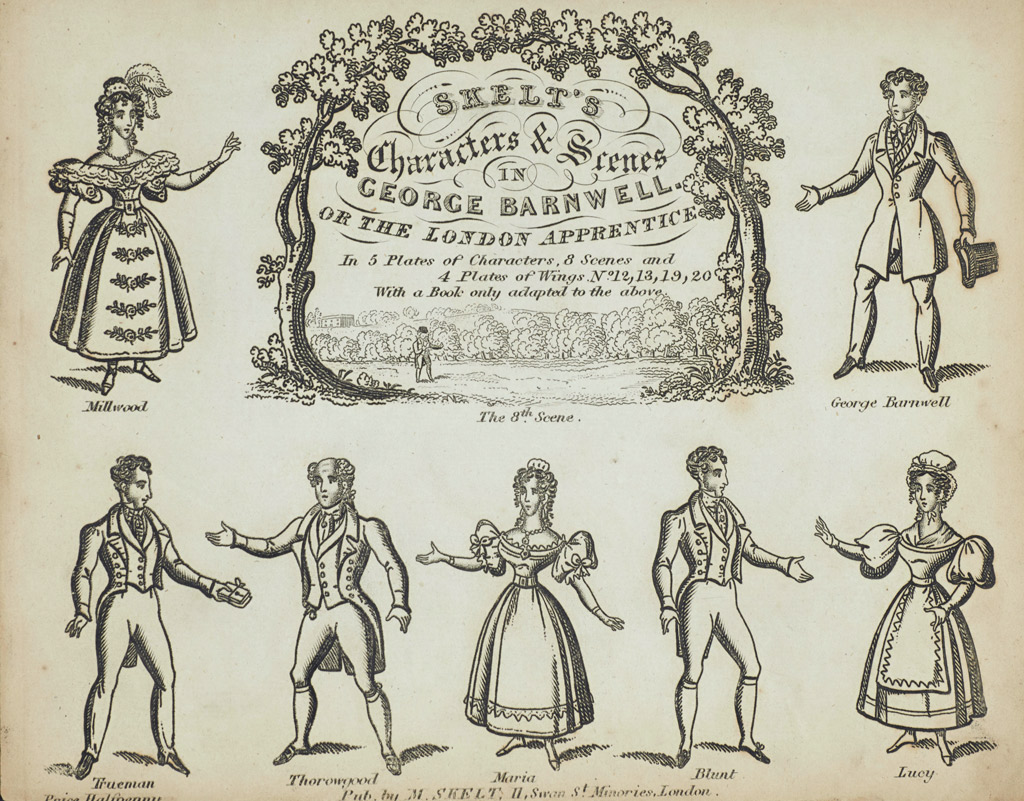 SKELT'S
Characters & Scenes
IN
GEORGE BARNWELL.
OR THE LONDON APPRENTICE
In 5 Plates of Characters, 8 Scenes and
4 Plates of Wings, Nº 12, 13, 19, 20
With a Book only adapted to the above.
Millwood
The 8th Scene.
George Barnwell
Trueman
Thorowgood
Maria
Blunt
Lucy
Price Halfpenny
Pub, by M. SKELT, 11, Swan St Minories, London.